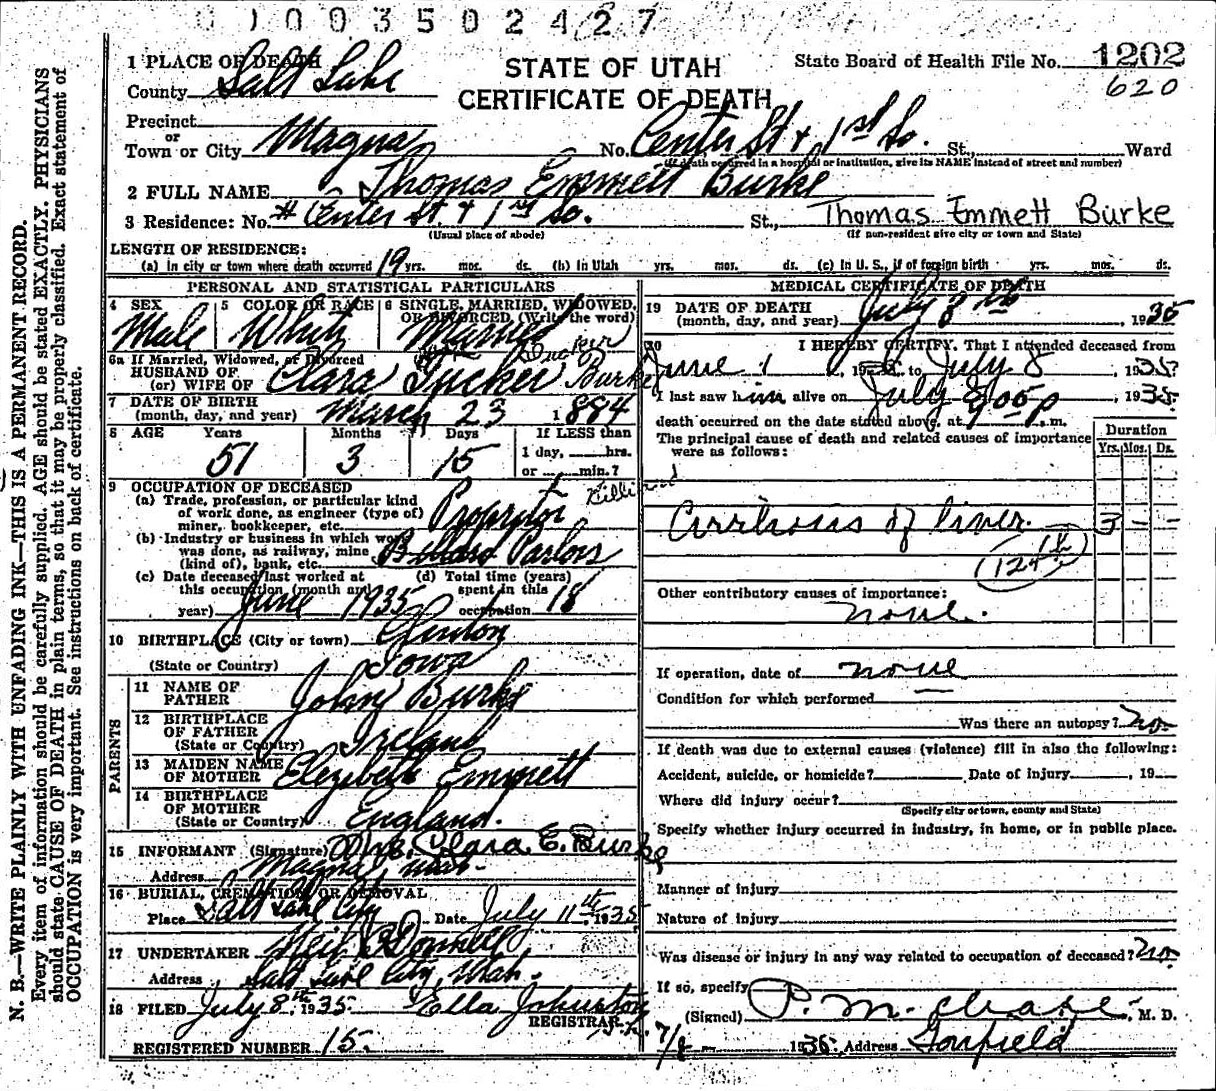 0 1 0 0 3 5 0 2 4 2 7
1 PLACE OF DEATH
County Salt Lake
STATE OF UTAH
CERTIFICATE OF DEATH
State Board of Health File No. 1202
620
Precinct
or
Town or City Magna No. Center St & 1st So. St., Ward
(If death occurred in a hospital or institution, give its NAME instead of street and number)
2 FULL NAME Thomas Emmett Burke
3 Residence: No. # Center St & 1st So. St., Thomas Emmett Burke
(Usual place of abode) (If non-resident give city or town and State)
LENGTH OF RESIDENCE:
(a) In city or town where death occurred 19 yrs. mos. ds. (b) In Utah yrs. mos. ds. (c) In U. S., if of foreign birth yrs. mos. ds.
PERSONAL AND STATISTICAL PARTICULARS
4 SEX Male
5 COLOR OR RACE White
6 SINGLE, MARRIED, WIDOWED, OR DIVORCED, (Write the word) Married
6a If Married, Widowed, or Divorced
HUSBAND OF
(or) WIFE OF Clara Tucker Burke
Tucker
7 DATE OF BIRTH
(month, day, and year) March 23 1884
8 AGE Years Months Days If LESS than
51 3 15 1 day, hrs.
or min.?
9 OCCUPATION OF DECEASED
(a) Trade, profession, or particular kind
of work done, as engineer (type of)
miner, bookkeeper, etc. Propritor
Billiard
(b) Industry or business in which work
was done, as railway, mine
(kind of), bank, etc. Billard Parlors
(c) Date deceased last worked at
this occupation (month and
year) June 1935
(d) Total time (years)
spent in this
occupation 18
10 BIRTHPLACE (City or town) Clinton
(State or Country) Iowa
PARENTS
11 NAME OF
FATHER John Burke
12 BIRTHPLACE
OF FATHER
(State or Country) Ireland
13 MAIDEN NAME
OF MOTHER Elezibeth Emmett
14 BIRTHPLACE
OF MOTHER
(State or Country) England.
15 INFORMANT (Signature) Mrs. Clara. E. Burke
Address Magna Utah.
16 BURIAL, CREMATION OR REMOVAL
Place Salt Lake City Date July 11th 1935
17 UNDERTAKER Neil O'Donnell
Address Salt Lake City, Utah.
18 FILED July 8th 1935. Ella Johnston
REGISTRAR
REGISTERED NUMBER 15.
MEDICAL CERTIFICATE OF DEATH
19 DATE OF DEATH
(month, day, and year) July 8th 1935
20 I HEREBY CERTIFY, That I attended deceased from
June 1 1935 to July 8 1935
I last saw him alive on July 8 1935
death occurred on the date stated above, at 9:00 p. m.
The principal cause of death and related causes of importance
were as follows:
Duration
Yrs. Mos. Ds.
Cirrhosis of liver. 3 - -
Other contributory causes of importance:
none.
If operation, date of none
Condition for which performed
Was there an autopsy? no.
If death was due to external causes (violence) fill in also the following:
Accident, suicide, or homicide? Date of injury , 19
Where did injury occur?
(Specify city or town, county and State)
Specify whether injury occurred in industry, in home, or in public place.
Manner of injury
Nature of injury
Was disease or injury in any way related to occupation of deceased? no.
If so, specify
(Signed) P. M. Chase. M. D.
7/8 - 1935 Address Garfield
N. B.—WRITE PLAINLY WITH UNFADING INK—THIS IS A PERMANENT RECORD.
Every item of information should be carefully supplied. AGE should be stated EXACTLY. PHYSICIANS
should state CAUSE OF DEATH in plain terms, so that it may be properly classified. Exact statement of
OCCUPATION is very important. See instructions on back of certificate.